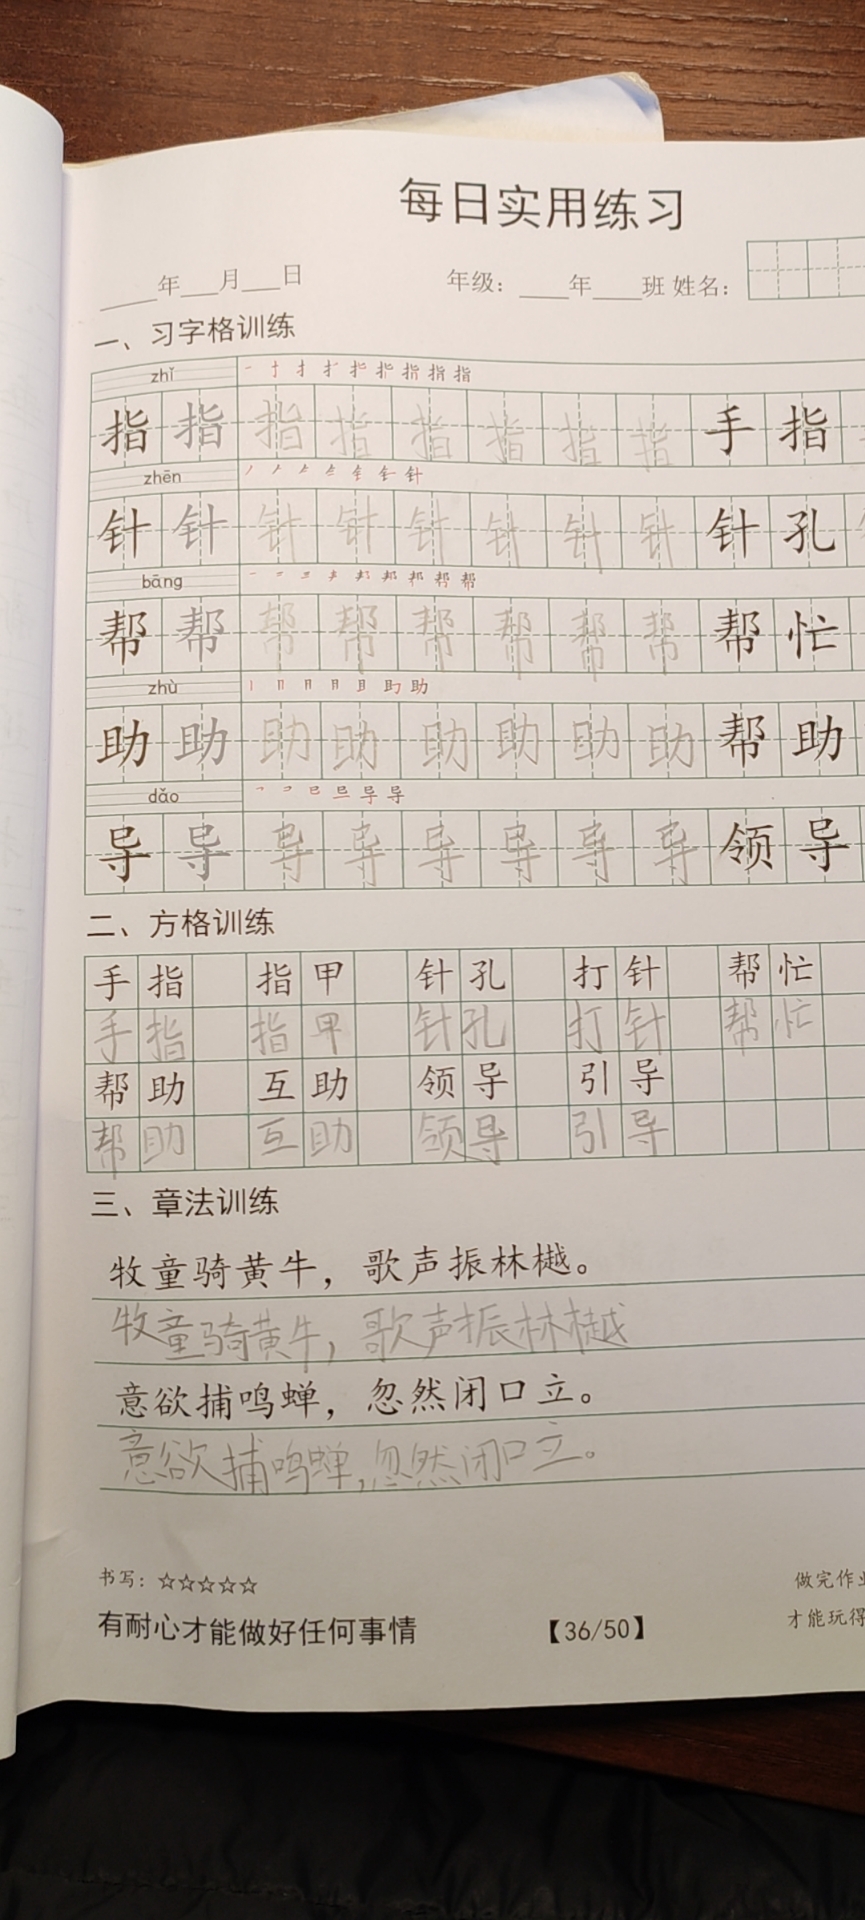 每日实用练习
年 月 日 年级： 年 班 姓名：
一、习字格训练
zhǐ
指 指 指 指 指 指 指 指 手 指
zhēn
针 针 针 针 针 针 针 针 针 孔
bāng
帮 帮 帮 帮 帮 帮 帮 帮 帮 忙
zhù
助 助 助 助 助 助 助 助 帮 助
dǎo
导 导 导 导 导 导 导 导 领 导
二、方格训练
手 指 指 甲 针 孔 打 针 帮 忙
手 指 指 甲 针 孔 打 针 帮 忙
帮 助 互 助 领 导 引 导
帮 助 互 助 领 导 引 导
三、章法训练
牧童骑黄牛，歌声振林樾。
牧童骑黄牛，歌声振林樾
意欲捕鸣蝉，忽然闭口立。
意欲捕鸣蝉，忽然闭口立。
书写：☆☆☆☆☆ 做完作业
有耐心才能做好任何事情 【36/50】 才能玩得